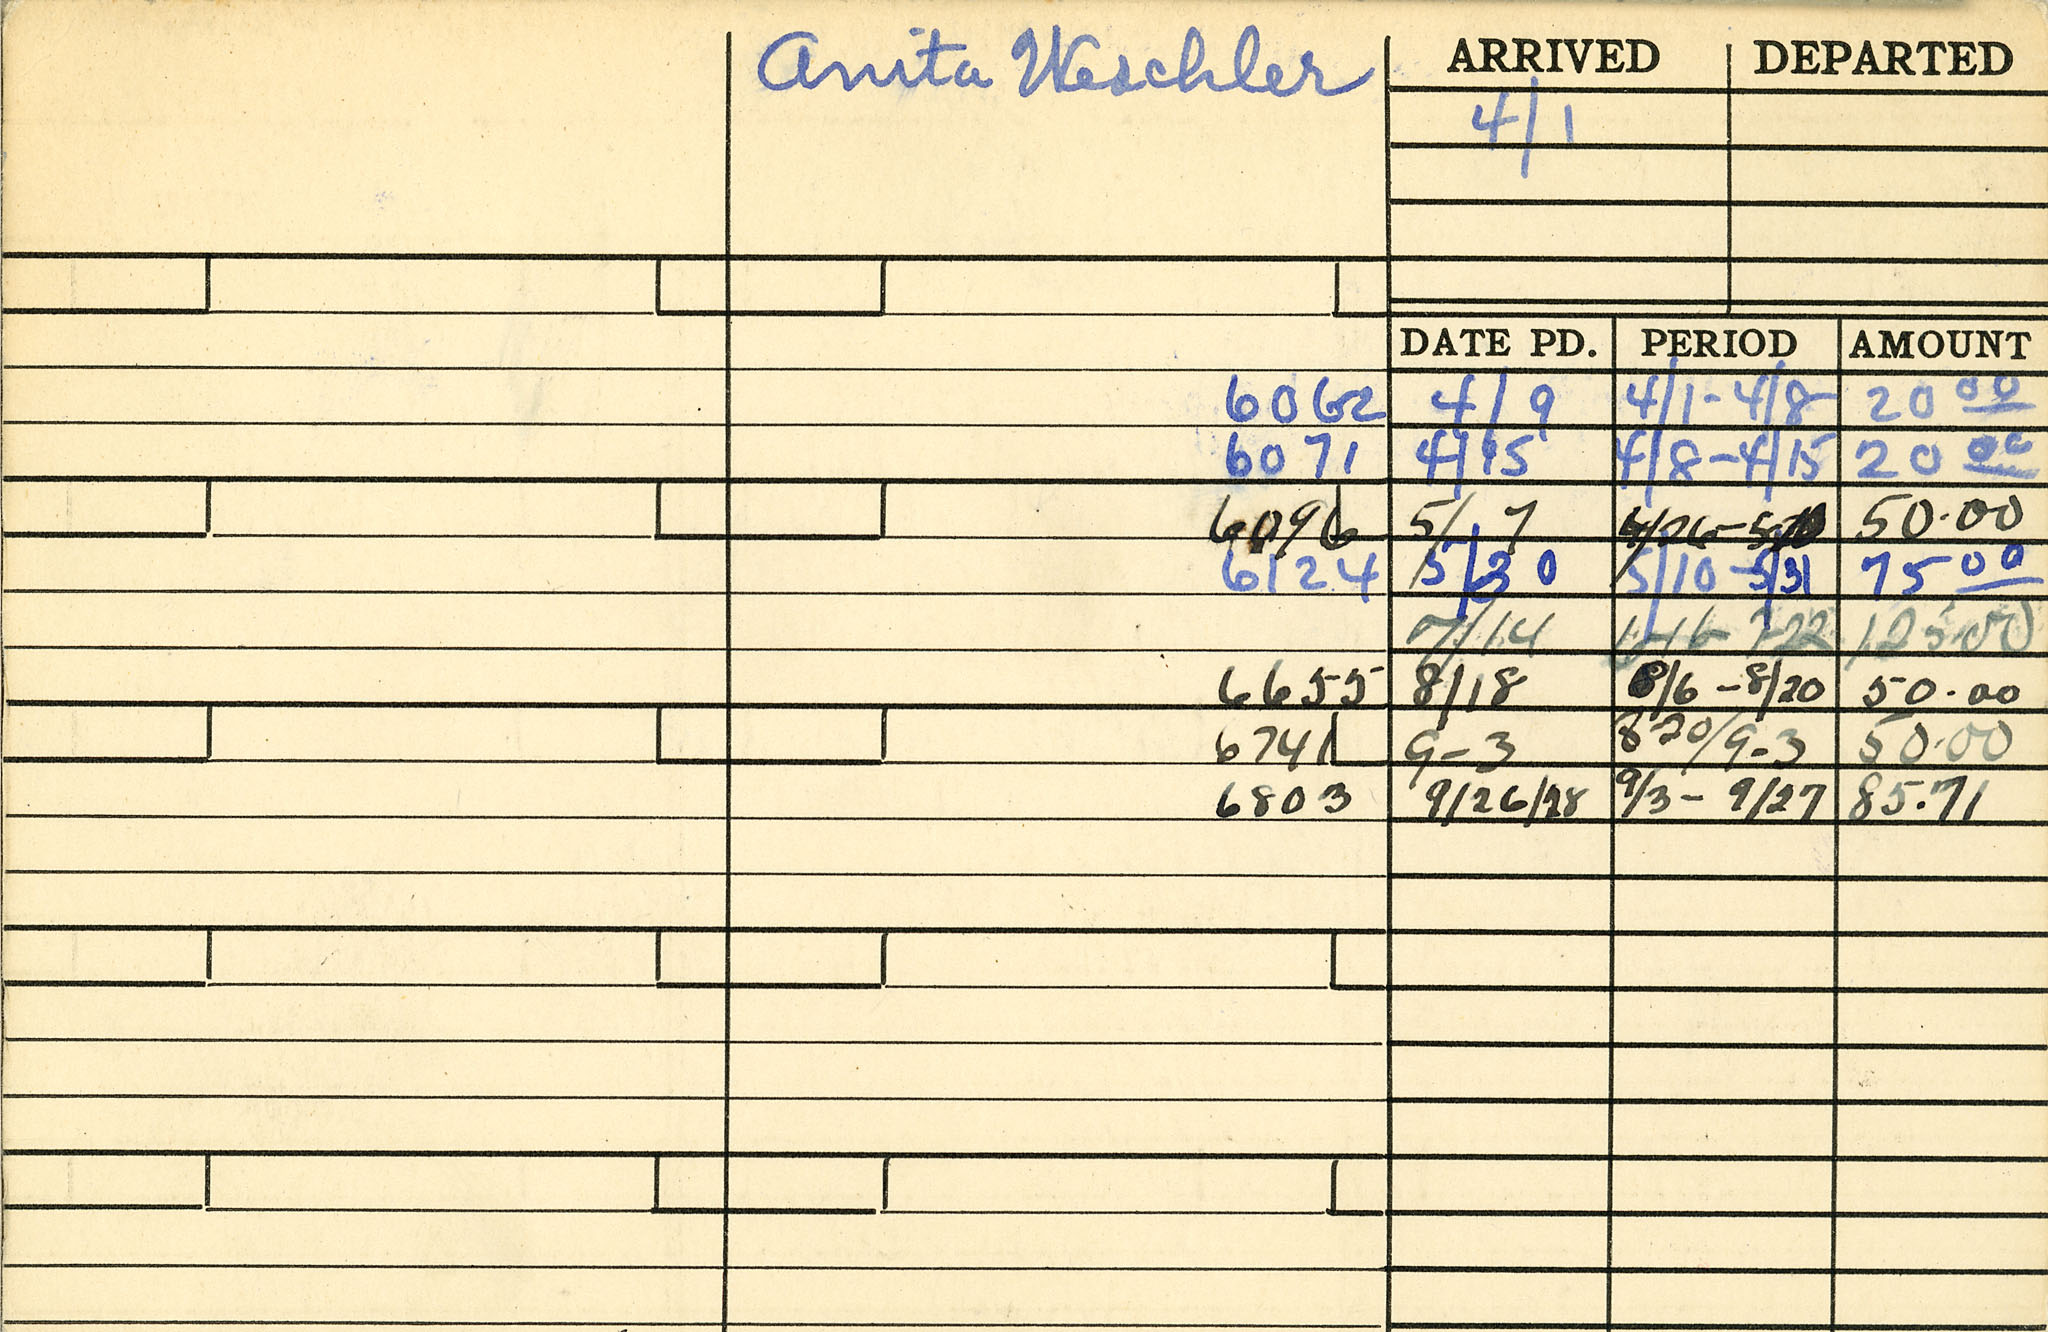 Anita Weschler ARRIVED DEPARTED
4/1
DATE PD. PERIOD AMOUNT
6062 4/9 4/1-4/8 20 00
6071 4/15 4/8-4/15 20 00
6096 5/7 50.00
6124 5/30 5/10-5/31 75 00
7/14 125.00
6655 8/18 8/6-8/20 50.00
6741 9-3 8 20/9-3 50.00
6803 9/26/28 9/3-9/27 85.71